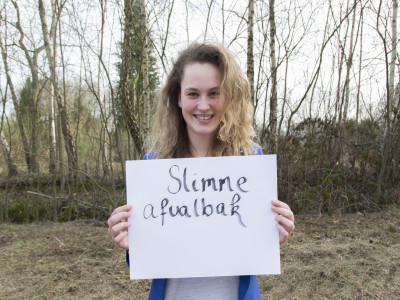 Slimme
afvalbak